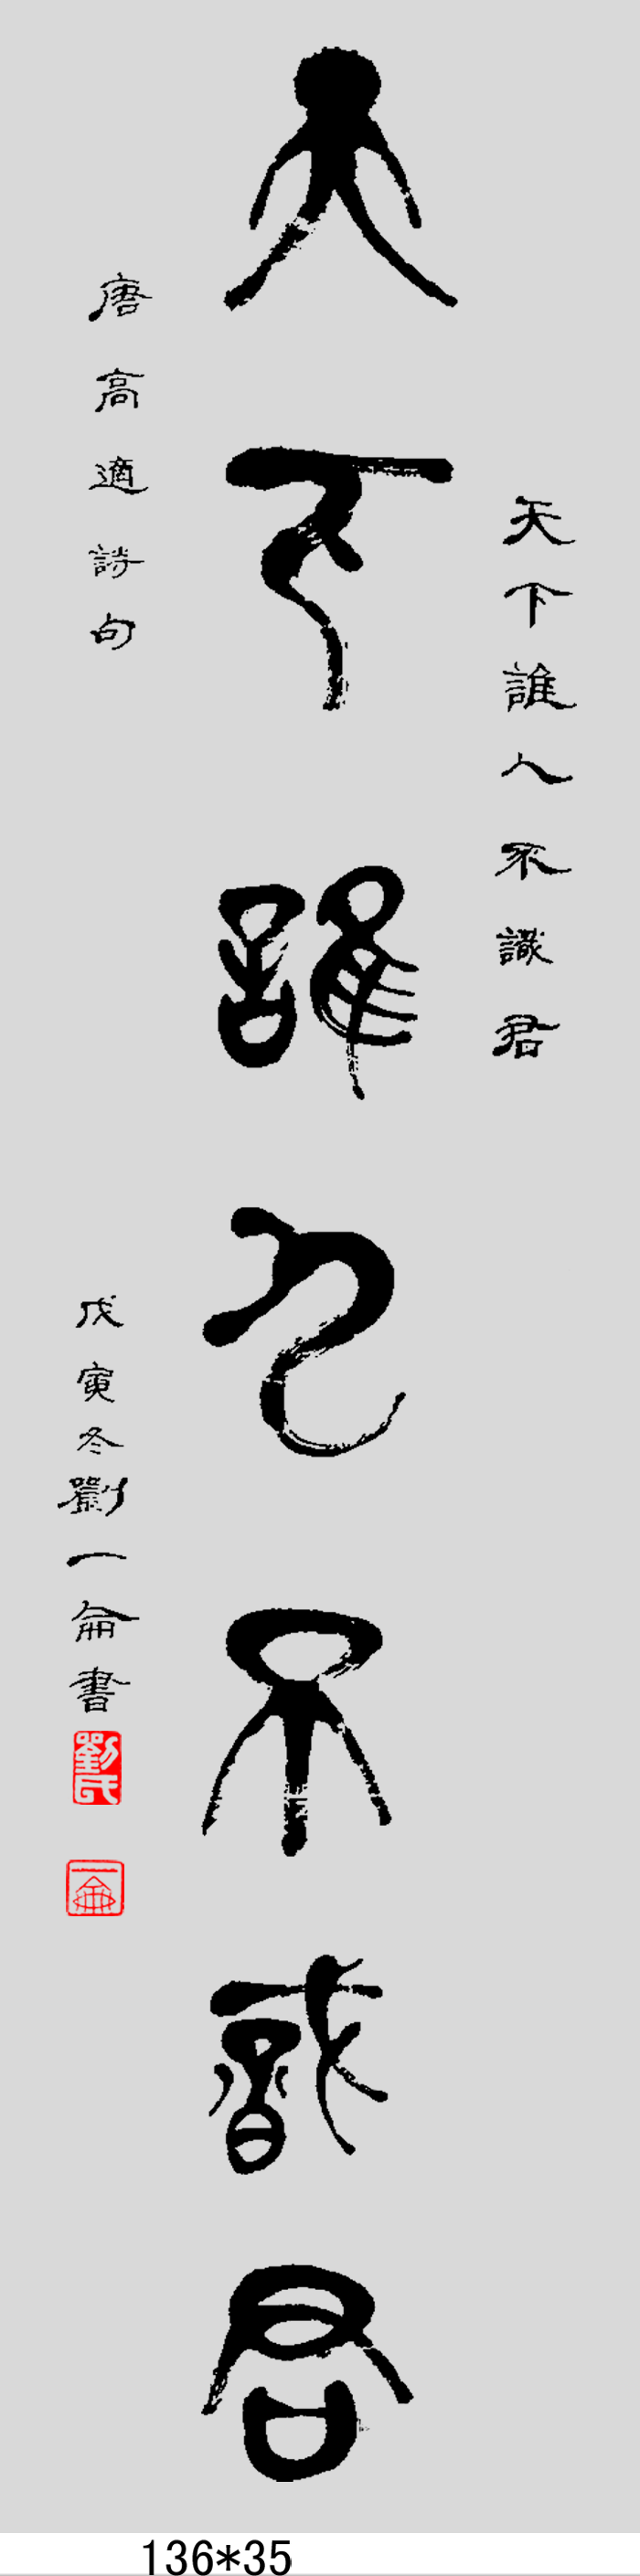 天下誰人不識君
天下誰人不識君
唐高適詩句
戊寅冬劉一侖書
劉氏
一侖
136*35